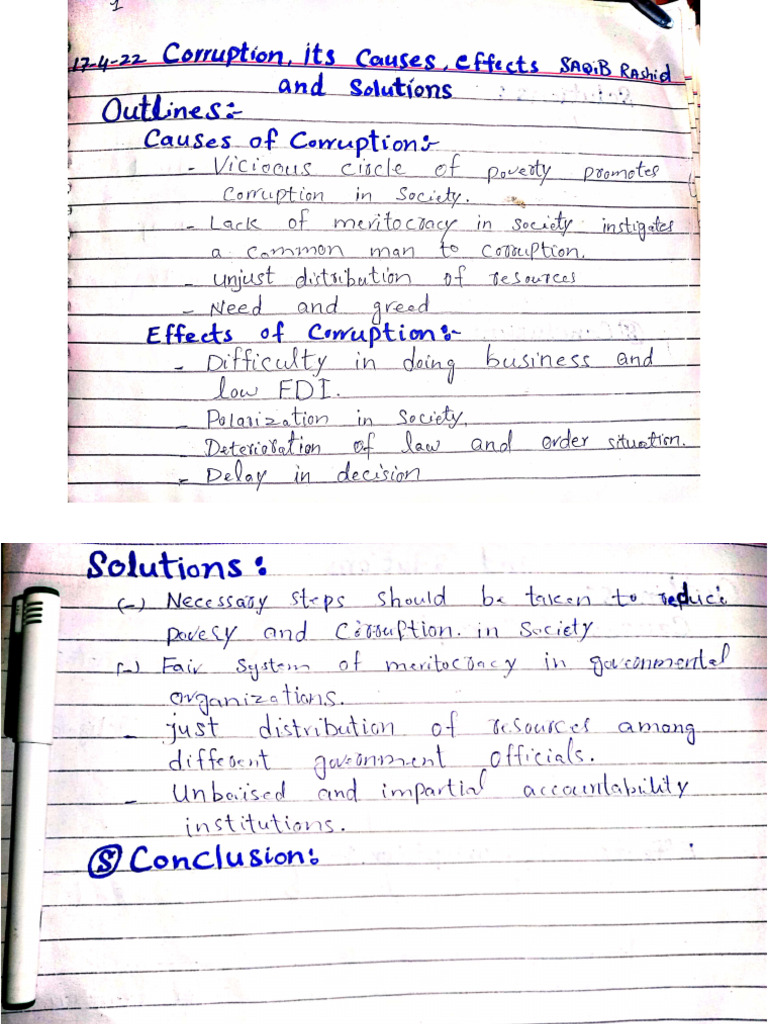 1
17-4-22 Corruption, its Causes, effects SAQIB Rashid
and Solutions
Outlines:-
Causes of Corruption:-
- Viciocus circle of poverty promotes
Corruption in Society.
- Lack of meritocracy in society instigates
a common man to corruption.
- unjust distribution of resources
- Need and greed
Effects of Corruption:-
- Difficulty in doing business and
low FDI.
- Polarization in Society.
- Deterioration of law and order situation.
- Delay in decision
Solutions:
(-) Necessary steps should be taken to reduce
povesy and Corruption. in Society
(-) Fair System of meritocracy in governmental
organizations.
- just distribution of resources among
different government officials.
- Unbaised and impartial accountability
institutions.
(S) Conclusion: